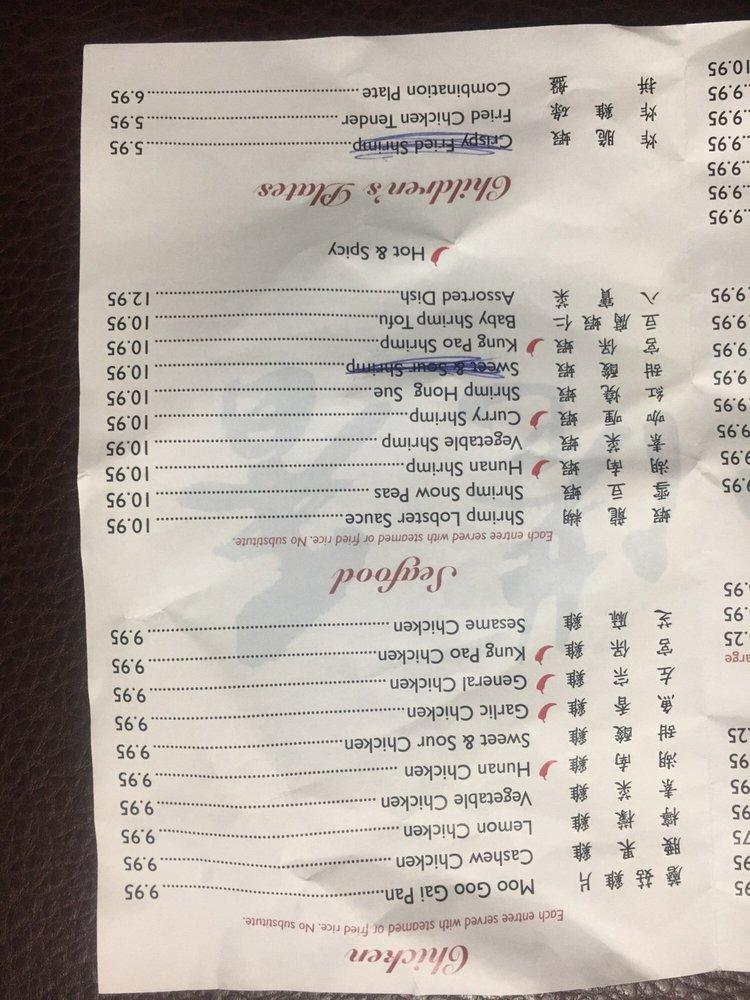 Chicken
Each entree served with steamed or fried rice. No substitute.
蘑菇雞片 Moo Goo Gai Pan 9.95
腰果雞 Cashew Chicken 9.95
檸檬雞 Lemon Chicken 9.95
素菜雞 Vegetable Chicken 9.95
湖南雞 Hunan Chicken 9.95
甜酸雞 Sweet & Sour Chicken 9.95
魚香雞 Garlic Chicken 9.95
左宗雞 General Chicken 9.95
宮保雞 Kung Pao Chicken 9.95
芝麻雞 Sesame Chicken 9.95
Seafood
Each entree served with steamed or fried rice. No substitute.
蝦龍糊 Shrimp Lobster Sauce 10.95
雪豆蝦 Shrimp Snow Peas 10.95
湖南蝦 Hunan Shrimp 10.95
素菜蝦 Vegetable Shrimp 10.95
咖喱蝦 Curry Shrimp 10.95
紅燒蝦 Shrimp Hong Sue 10.95
甜酸蝦 Sweet & Sour Shrimp 10.95
宮保蝦 Kung Pao Shrimp 10.95
豆腐蝦仁 Baby Shrimp Tofu 10.95
八寶菜 Assorted Dish 12.95
Hot & Spicy
Children's Plates
炸脆蝦 Crispy Fried Shrimp 5.95
炸雞條 Fried Chicken Tender 5.95
拼盤 Combination Plate 6.95